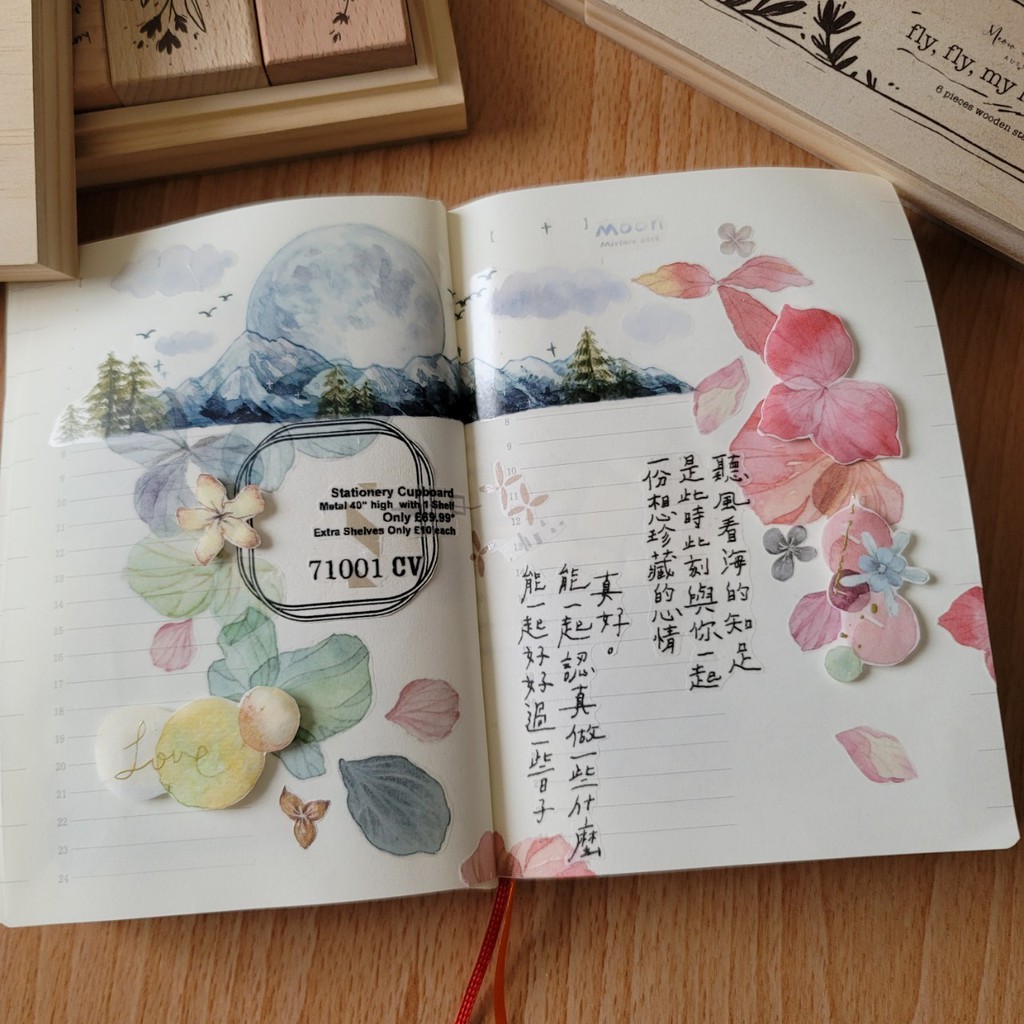 fly, fly, my
6 pieces wooden
Moon
Stationery Cupboard
Metal 40" high with 1 Shelf
Only £69.99*
Extra Shelves Only £10 each
71001 CV
Love
聽風看海的知足
是此時此刻與你一起
一份想珍藏的心情
真好。
能一起認真做一些什麼
能一起好好過一些日子
9
10
11
12
13
14
15
16
17
18
19
20
21
22
23
24
8
9
10
11
12
13